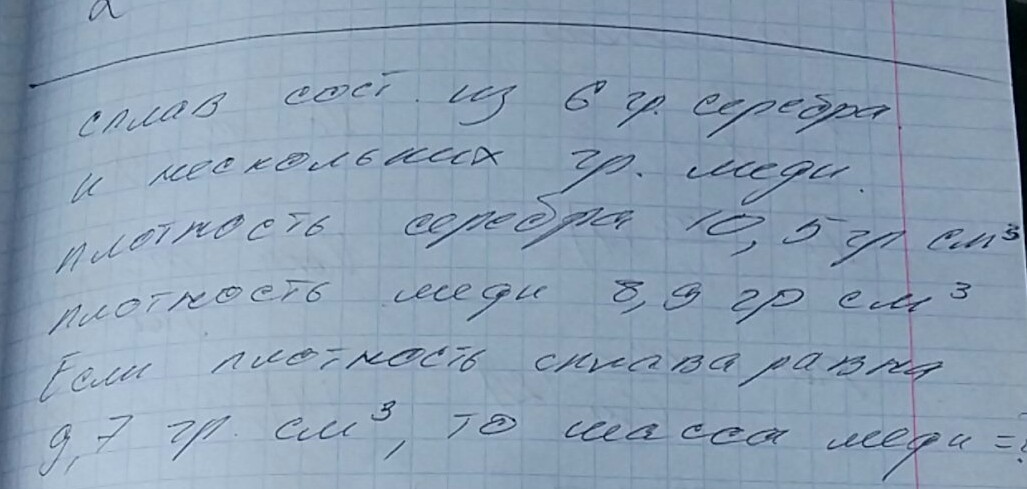 сплав сост. из 6 гр. серебра
и нескольких гр. меди.
плотность серебра 10,5 гр см³
плотность меди 8,9 гр см³
Если плотность сплава равна
9,7 гр. см³, то масса меди = ?